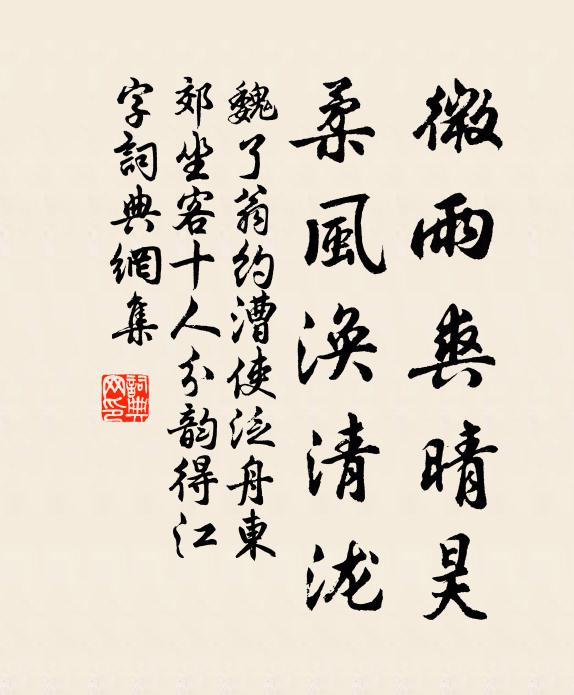 微雨爽晴昊
柔風渙清瀧
魏了翁約漕使泛舟東
郊坐客十人分韵得江
字詞典網集
詞典
网印